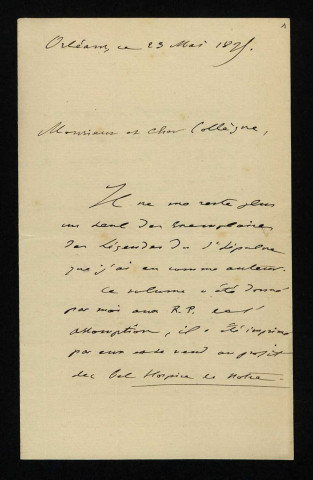 Orléans, ce 23 Mai
Monsieur et cher Collègue,
Il ne me reste plus
un seul des exemplaires
des Légendes du St Sépulcre
que j'ai eu comme auteur.
Ce volume a été donné
par moi aux R.P. de l'
Assomption, il a été imprimé
par eux et se vend au profit
du bel Hospice de Notre-